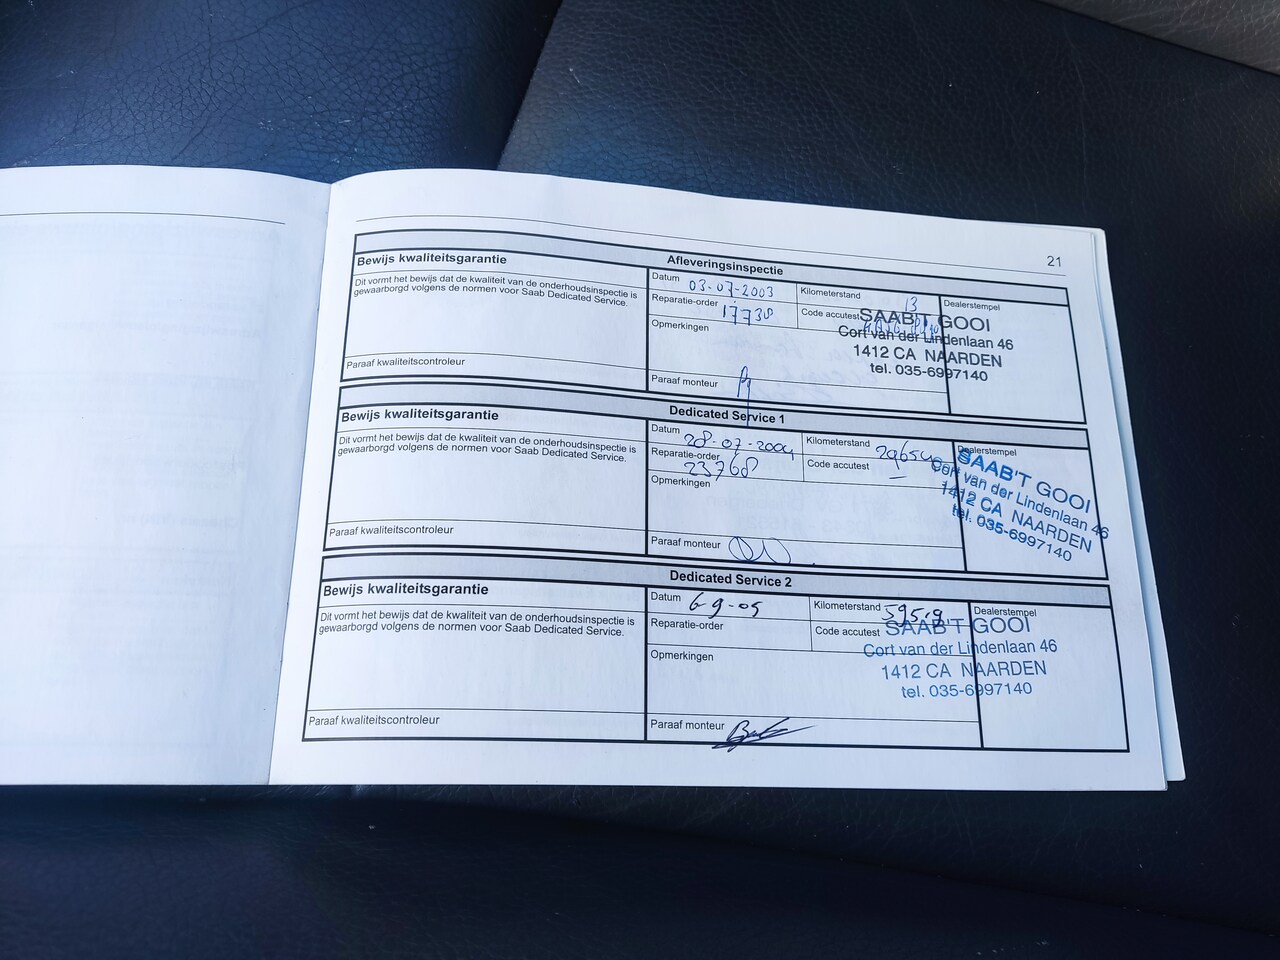 21
Afleveringsinspectie
Bewijs kwaliteitsgarantie
Dit vormt het bewijs dat de kwaliteit van de onderhoudsinspectie is
gewaarborgd volgens de normen voor Saab Dedicated Service.
Paraaf kwaliteitscontroleur
Datum 03-07-2003
Kilometerstand 13
Reparatie-order 17738
Code accutest
Opmerkingen
Paraaf monteur
Dealerstempel
SAAB'T GOOI
Cort van der Lindenlaan 46
1412 CA NAARDEN
tel. 035-6997140
Dedicated Service 1
Bewijs kwaliteitsgarantie
Dit vormt het bewijs dat de kwaliteit van de onderhoudsinspectie is
gewaarborgd volgens de normen voor Saab Dedicated Service.
Paraaf kwaliteitscontroleur
Datum 28-07-2004
Kilometerstand
Reparatie-order 23768
Code accutest –
Opmerkingen
Paraaf monteur
Dealerstempel
SAAB'T GOOI
Cort van der Lindenlaan 46
1412 CA NAARDEN
tel. 035-6997140
Dedicated Service 2
Bewijs kwaliteitsgarantie
Dit vormt het bewijs dat de kwaliteit van de onderhoudsinspectie is
gewaarborgd volgens de normen voor Saab Dedicated Service.
Paraaf kwaliteitscontroleur
Datum 6-9-05
Kilometerstand
Reparatie-order
Code accutest
Opmerkingen
Paraaf monteur
Dealerstempel
SAAB'T GOOI
Cort van der Lindenlaan 46
1412 CA NAARDEN
tel. 035-6997140